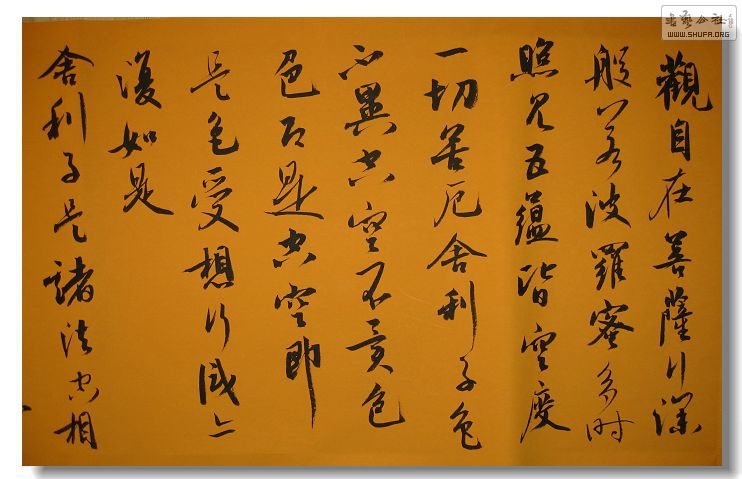 觀自在菩薩行深
般若波羅蜜多时
照見五蘊皆空度
一切苦厄舍利子色
不異空空不異色
色即是空空即
是色受想行識亦
復如是
舍利子是諸法空相
書藝公社
WWW.SHUFA.ORG